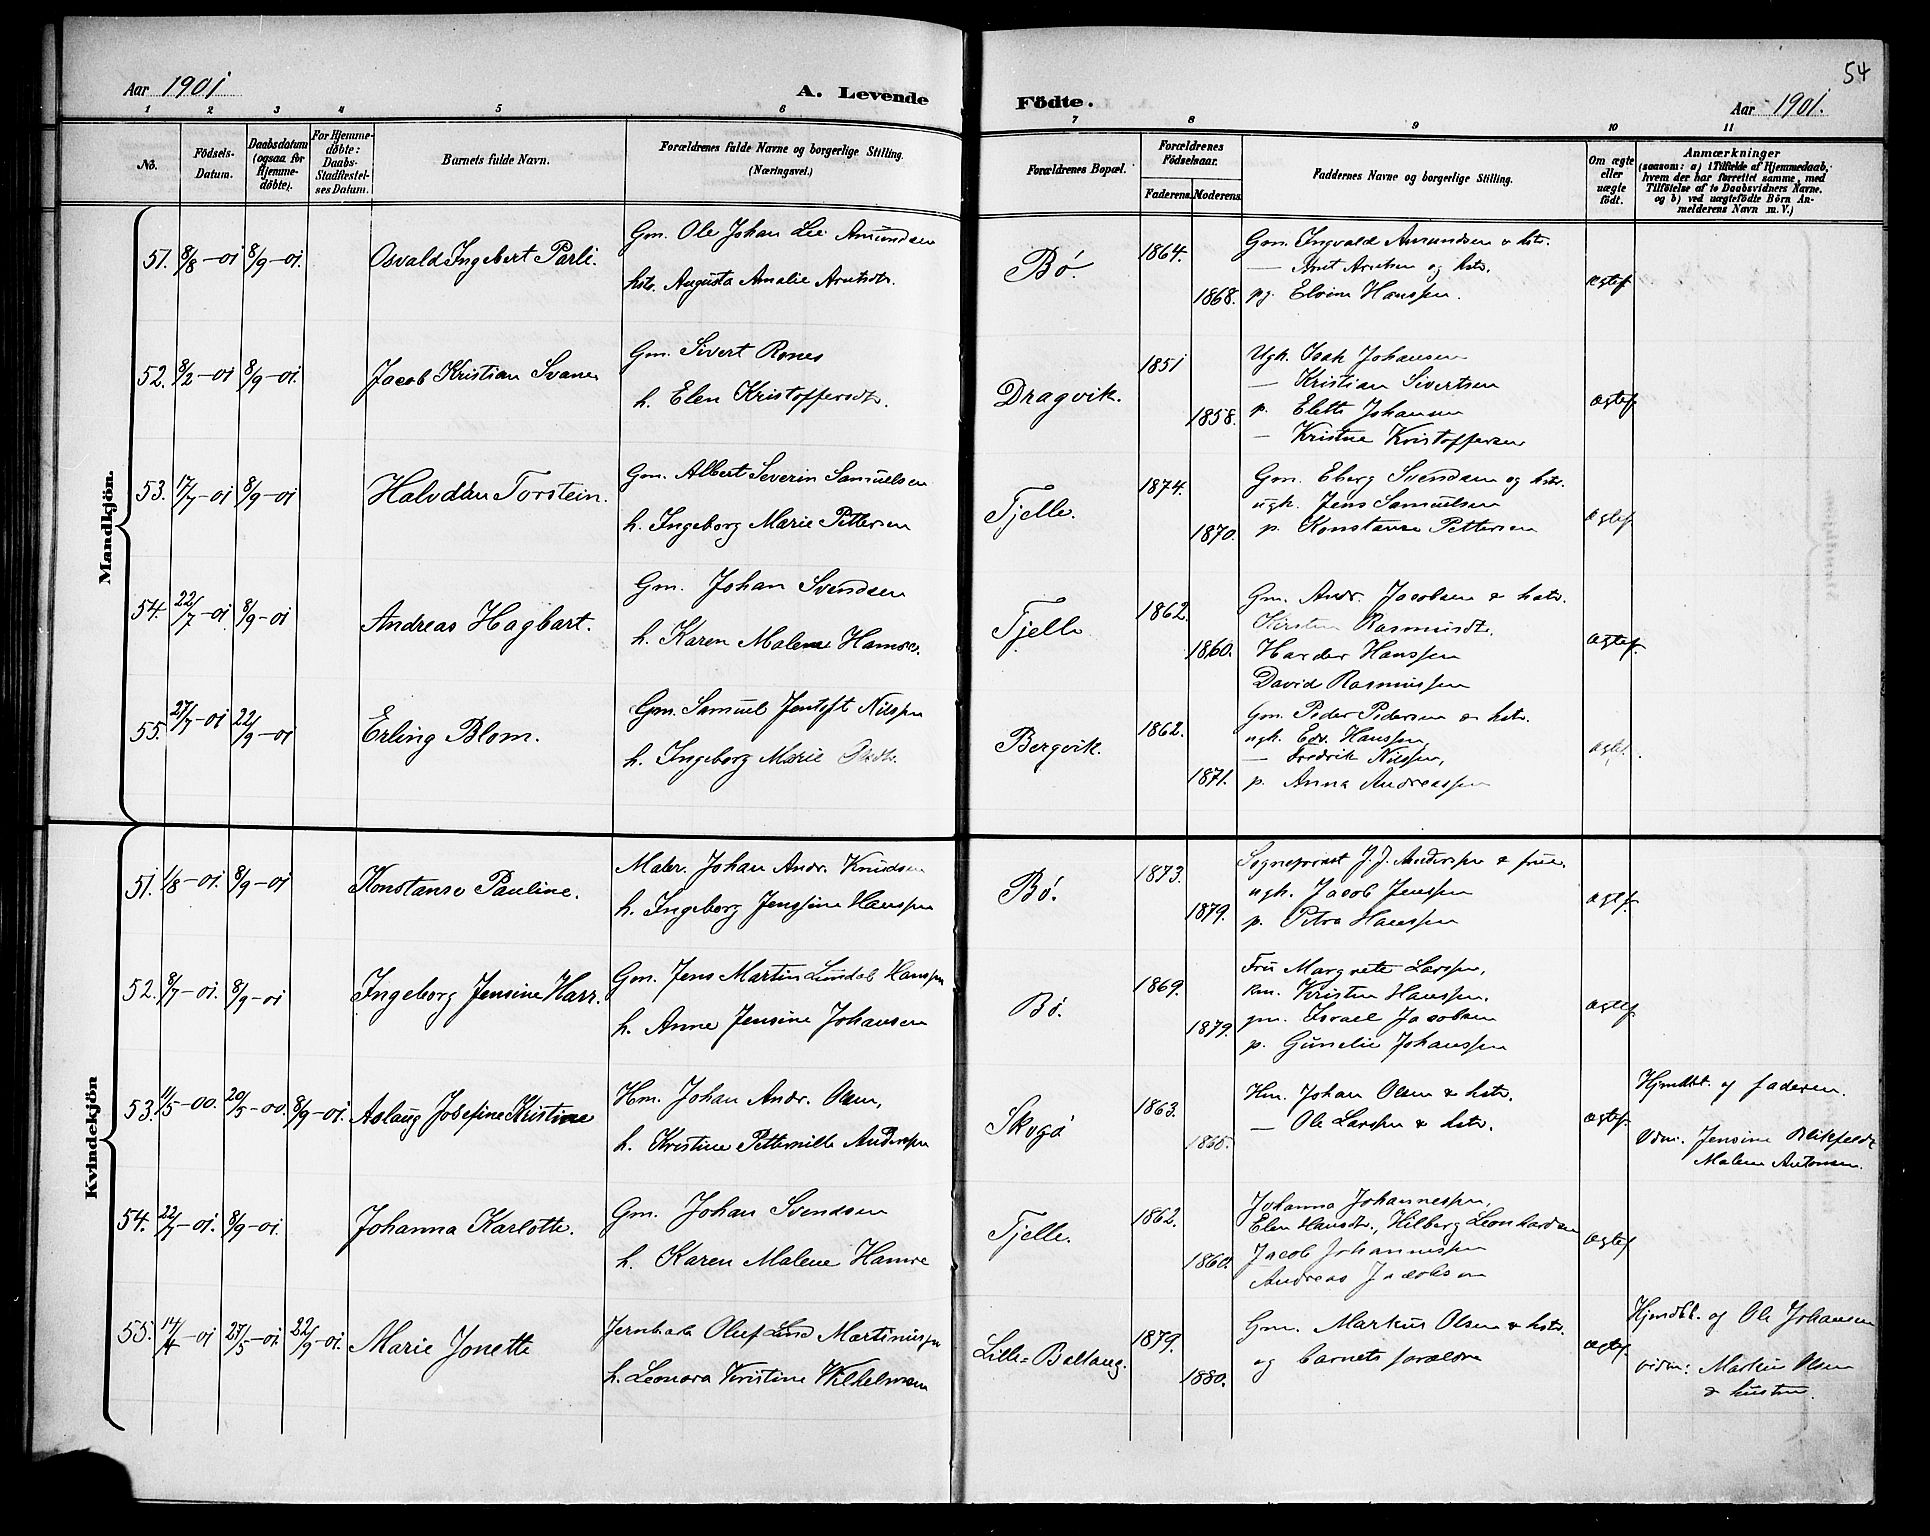 54
Aar 1901
A. Levende
Födte.
Aar 1901.
1 2 3 4 5 6 7 8 9 10 11
No.
Födsels-
Datum.
Daabsdatum
(ogsaa for
Hjemme-
döbte).
For Hjemme-
döbte:
Daabs-
Stadfæstel-
ses Datum.
Barnets fulde Navn.
Forældrenes fulde Navne og borgerlige Stilling.
(Næringsvei.)
Forældrenes Bopæl.
Forældrenes
Födselsaar.
Faderens. Moderens.
Faddernes Navne og borgerlige Stilling.
Om ægte
eller
uægte
födt.
Anmærkninger
(saasom: a) i Tilfælde af Hjemmedaab,
hvem der har forrettet samme, med
Tilföielse af to Daabsvidners Navne.
og b) ved uægtefödte Börn An-
melderens Navn m. V.)
Mandkjön.
51. 8/8-01 8/9-01. Osvald Ingebert Parli.
Gm. Ole Johan Lee Amundsen
hstr. Augusta Amalie Arntsdtr.
Bø. 1864. 1868.
Gm. Ingvald Amundsen & hstr.
— Arnt Arntsen og hstr.
pg. Elvine Hanssen.
ægtef.
52. 8/2-01 8/9-01. Jacob Kristian Svane
Gm. Sivert Rones
h. Elen Kristoffersdtr.
Dragvik. 1851 1858.
Ugk. Isak Johansen
— Kristian Sivertsen
p. Elette Johansen
— Kristine Kristoffersen
ægtef.
53. 17/7-01 8/9-01 Halvdan Torstein.
Gm. Albert Severin Samuelsen
h. Ingeborg Marie Pettersen
Tjelle. 1874. 1870.
Gm. Eberg Svendsen og hstr.
ugk. Jens Samuelsen
p. Konstanse Pettersen
ægtef.
54. 22/7-01. 8/9-01 Andreas Hagbart.
Gm. Johan Svendsen
h. Karen Malene Hamre.
Tjelle 1862. 1860.
Gm. Andr. Jacobsen & hstr.
Kirsten Rasmusdtr.
Harder Hanssen
David Rasmussen
ægtef.
55. 27/7-01 22/9-01 Erling Blom.
Gm. Samuel Jentoft Nilssen
h. Ingeborg Marie
Bergvik. 1862. 1871.
Gm. Peder Pedersen & hstr.
ugk. Edv. Hanssen,
— Fredrik Nilssen,
p. Anna Andreassen
ægtef.
Kvindekjön
51. 1/8-01. 8/9-01 Konstanse Pauline.
Maler. Johan Andr. Knudsen
h. Ingeborg Jenssine Hanssen
Bø. 1873. 1879.
Sogneprest J. J. Anderssen & frue.
ugk. Jacob Jenssen
p. Petra Hanssen
ægtf.
52. 8/7-01. 8/9-01 Ingeborg Jensine Harr.
Gm. Jens Martin Lindal Hanssen
h. Anne Jensine Johansen
Bø. 1869. 1879.
Fru Margrete Larssen,
km. Kristen Hanssen.
gm. Israel Jacobsen
p. Gunelie Johanssen
ægtef.
53. 11/5-00. 20/5-00. 8/9-01. Aslaug Josefine Kristine
Hm. Johan Andr. Olsen,
h. Kristine Petternille Anderssen
Skogø 1863. 1865.
Hm. Johan Olsen & hstr.
— Ole Larssen & hstr.
ægtef.
Hjmdbt. af faderen.
Vidn. Jensine Blikfeldt
Malene Antonsen.
54. 22/7-01. 8/9-01. Johanna Karlotte.
Gm. Johan Svendsen
h. Karen Malene Hamre
Tjelle. 1862. 1860.
Johanna Johannessen,
Elen Hansdtr., Hilberg Leonhardsen
Jacob Johannessen
Andreas Jacobsen
ægtef
55. 14/4-01 27/5-01. 22/9-01. Marie Jonette
Jernb.arb. Oluf Lind Martinussen
h. Leonora Kristine Wilhelmsen
Lille-Ballang. 1879. 1880.
Gm. Markus Olsen & hstr.
og barnets forældre
ægtef.
Hjmdbt. af Ole Johansen
vidn: Markus Olsen
& hustru.